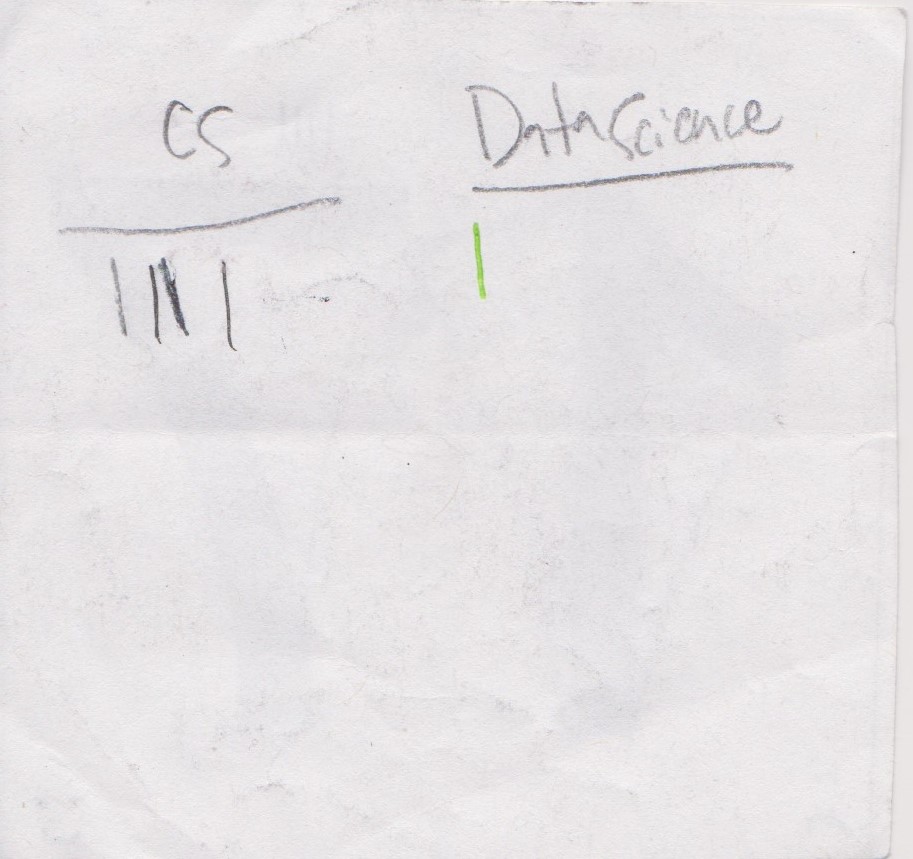 CS Data Science
|||| |